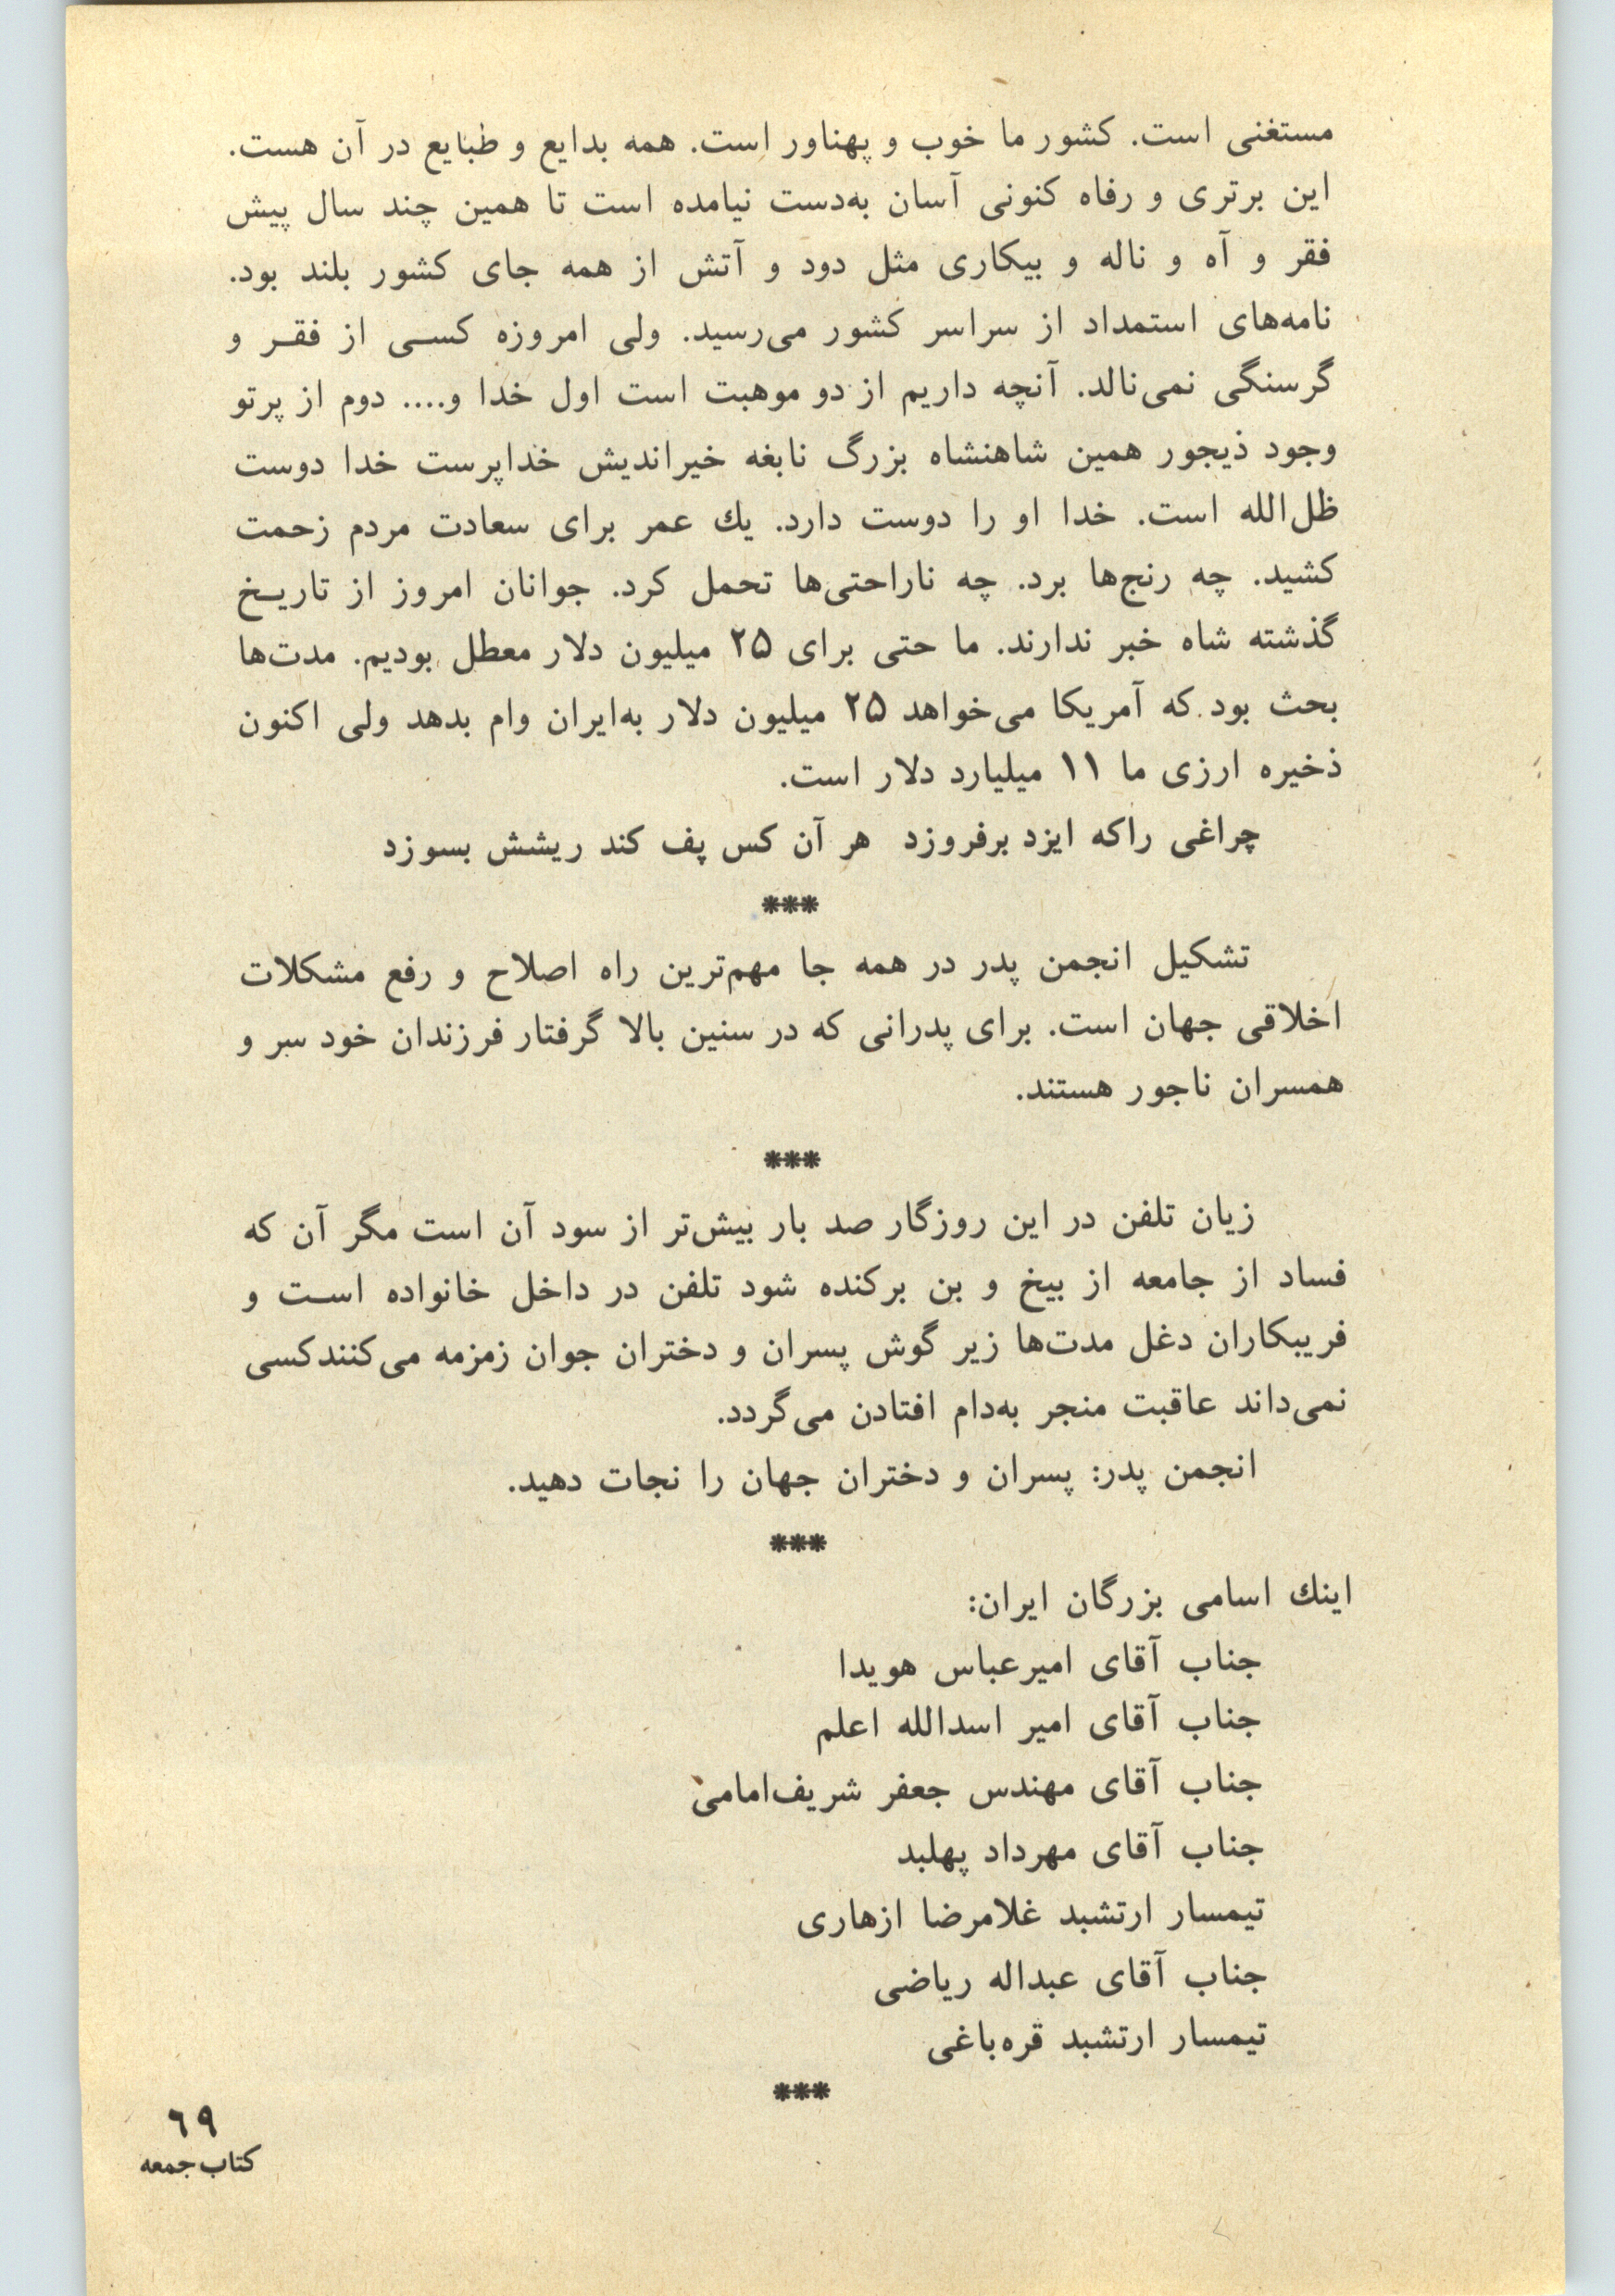 مستغنی است. کشور ما خوب و پهناور است. همه بدایع و طبایع در آن هست.
این برتری و رفاه کنونی آسان به‌دست نیامده است تا همین چند سال پیش
فقر و آه و ناله و بیکاری مثل دود و آتش از همه جای کشور بلند بود.
نامه‌های استمداد از سراسر کشور می‌رسید. ولی امروزه کسـی از فقـر و
گرسنگی نمی‌نالد. آنچه داریم از دو موهبت است اول خدا و.... دوم از پرتو
وجود ذیجور همین شاهنشاه بزرگ نابغه خیراندیش خداپرست خدا دوست
ظل‌الله است. خدا او را دوست دارد. یك عمر برای سعادت مردم زحمت
کشید. چه رنج‌ها برد. چه ناراحتی‌ها تحمل کرد. جوانان امروز از تاریـخ
گذشته شاه خبر ندارند. ما حتی برای ۲۵ میلیون دلار معطل بودیم. مدت‌ها
بحث بود که آمریکا می‌خواهد ۲۵ میلیون دلار به‌ایران وام بدهد ولی اکنون
ذخیره ارزی ما ۱۱ میلیارد دلار است.
چراغی راکه ایزد برفروزد هر آن کس پف کند ریشش بسوزد
***
تشکیل انجمن پدر در همه جا مهم‌ترین راه اصلاح و رفع مشکلات
اخلاقی جهان است. برای پدرانی که در سنین بالا گرفتار فرزندان خود سر و
همسران ناجور هستند.
***
زیان تلفن در این روزگار صد بار بیش‌تر از سود آن است مگر آن که
فساد از جامعه از بیخ و بن برکنده شود تلفن در داخل خانواده اسـت و
فریبکاران دغل مدت‌ها زیر گوش پسران و دختران جوان زمزمه می‌کنندکسی
نمی‌داند عاقبت منجر به‌دام افتادن می‌گردد.
انجمن پدر: پسران و دختران جهان را نجات دهید.
***
اینك اسامی بزرگان ایران:
جناب آقای امیرعباس هویدا
جناب آقای امیر اسدالله اعلم
جناب آقای مهندس جعفر شریف‌امامی
جناب آقای مهرداد پهلبد
تیمسار ارتشبد غلامرضا ازهاری
جناب آقای عبداله ریاضی
تیمسار ارتشبد قره‌باغی
***
۶۹
کتاب‌جمعه